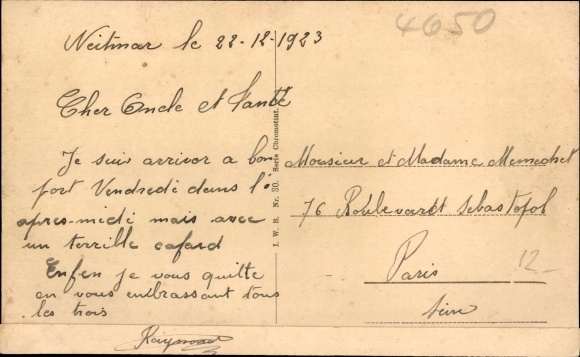 4650
Neitmar le 22-12-1923
Cher Oncle et Tante
Je suis arriver a bon
port Vendredi dans l'
apres-midi mais avec
un terrible cafard
Enfen je vous quitte
en vous enbrassant tous
les trois
Raymond
I. W. B. Nr. 30. Serie Chromotint.
Monsieur et Madame Mennechet
76 Boulevardt Sebastopol
Paris
12-
Seine